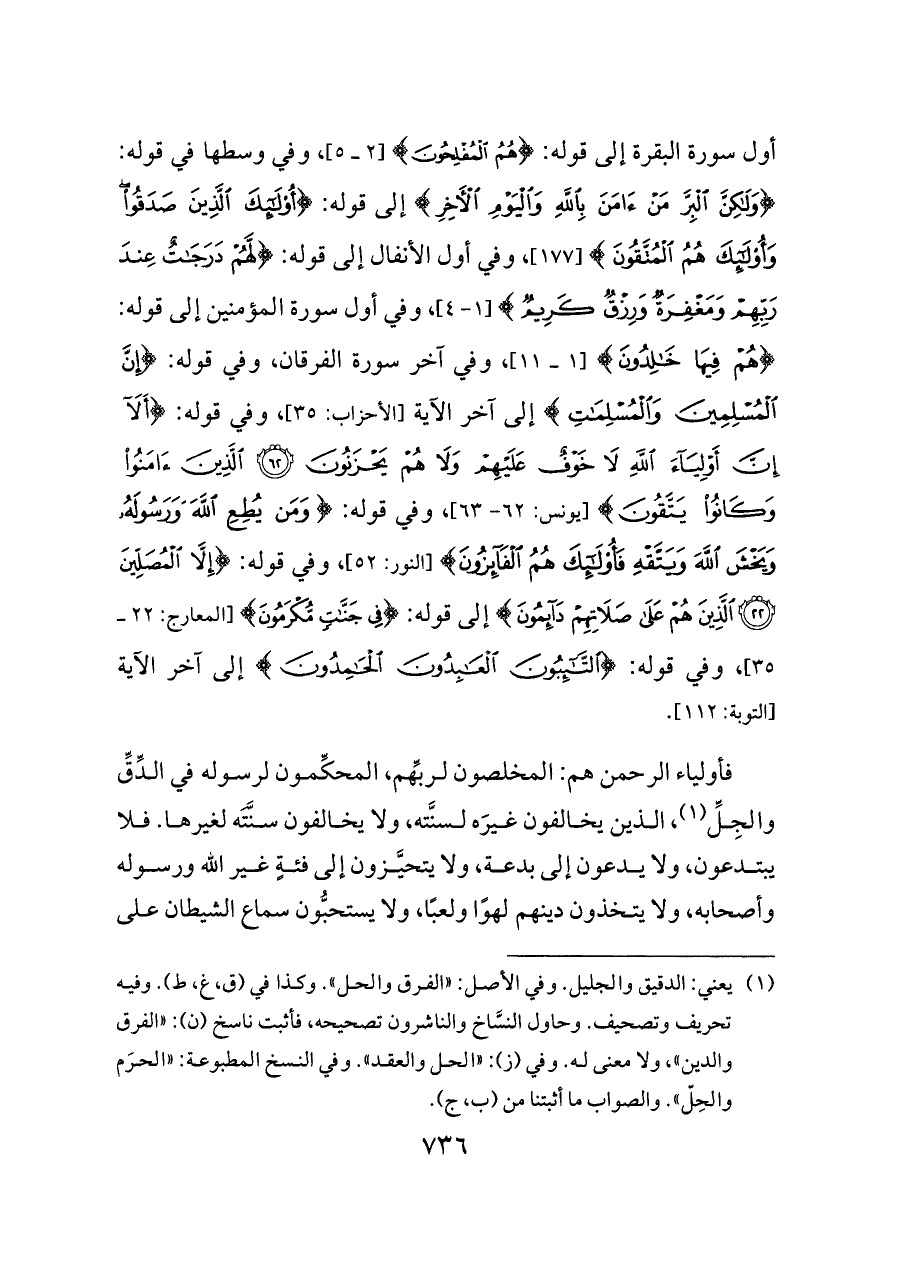 أول سورة البقرة إلى قوله: ﴿هُمُ ٱلۡمُفۡلِحُونَ﴾ [٢ ـ ٥]، وفي وسطها في قوله:
﴿وَلَٰكِنَّ ٱلۡبِرَّ مَنۡ ءَامَنَ بِٱللَّهِ وَٱلۡيَوۡمِ ٱلۡأٓخِرِ﴾ إلى قوله: ﴿أُوْلَٰٓئِكَ ٱلَّذِينَ صَدَقُواْۖ
وَأُوْلَٰٓئِكَ هُمُ ٱلۡمُتَّقُونَ﴾ [١٧٧]، وفي أول الأنفال إلى قوله: ﴿لَّهُمۡ دَرَجَٰتٌ عِندَ
رَبِّهِمۡ وَمَغۡفِرَةٌ وَرِزۡقٌ كَرِيمٌ﴾ [١- ٤]، وفي أول سورة المؤمنين إلى قوله:
﴿هُمۡ فِيهَا خَٰلِدُونَ﴾ [١ ـ ١١]، وفي آخر سورة الفرقان، وفي قوله: ﴿إِنَّ
ٱلۡمُسۡلِمِينَ وَٱلۡمُسۡلِمَٰتِ﴾ إلى آخر الآية [الأحزاب: ٣٥]، وفي قوله: ﴿أَلَآ
إِنَّ أَوۡلِيَآءَ ٱللَّهِ لَا خَوۡفٌ عَلَيۡهِمۡ وَلَا هُمۡ يَحۡزَنُونَ ٦٢ ٱلَّذِينَ ءَامَنُواْ
وَكَانُواْ يَتَّقُونَ﴾ [يونس: ٦٢- ٦٣]، وفي قوله: ﴿وَمَن يُطِعِ ٱللَّهَ وَرَسُولَهُۥ
وَيَخۡشَ ٱللَّهَ وَيَتَّقۡهِ فَأُوْلَٰٓئِكَ هُمُ ٱلۡفَآئِزُونَ﴾ [النور: ٥٢]، وفي قوله: ﴿إِلَّا ٱلۡمُصَلِّينَ
٢٢ ٱلَّذِينَ هُمۡ عَلَىٰ صَلَاتِهِمۡ دَآئِمُونَ﴾ إلى قوله: ﴿فِي جَنَّٰتٖ مُّكۡرَمُونَ﴾ [المعارج: ٢٢ ـ
٣٥]، وفي قوله: ﴿ٱلتَّٰٓئِبُونَ ٱلۡعَٰبِدُونَ ٱلۡحَٰمِدُونَ﴾ إلى آخر الآية
[التوبة: ١١٢].
فأولياء الرحمن هم: المخلصون لربِّهم، المحكِّمون لرسوله في الدِّقِّ
والجِلِّ(١)، الذين يخالفون غيرَه لسنَّته، ولا يخالفون سنَّتَه لغيرها. فلا
يبتدعون، ولا يدعون إلى بدعة، ولا يتحيَّزون إلى فئةٍ غير الله ورسوله
وأصحابه، ولا يتخذون دينهم لهوًا ولعبًا، ولا يستحبُّون سماع الشيطان على
(١) يعني: الدقيق والجليل. وفي الأصل: «الفرق والحل». وكذا في (ق، غ، ط). وفيه
تحريف وتصحيف. وحاول النسَّاخ والناشرون تصحيحه، فأثبت ناسخ (ن): «الفرق
والدين»، ولا معنى له. وفي (ز): «الحل والعقد». وفي النسخ المطبوعة: «الحرَم
والحِلّ». والصواب ما أثبتنا من (ب، ج).
٧٣٦